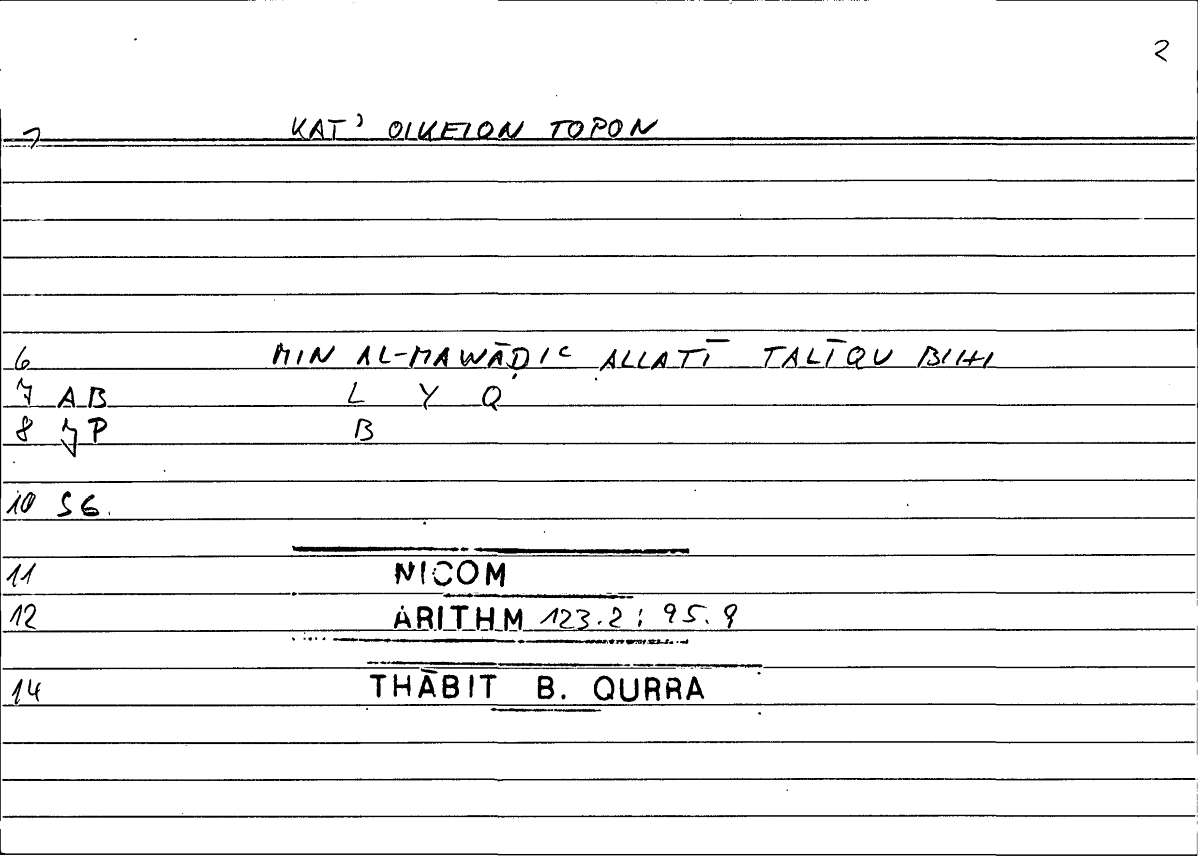 2
1 KAT' OIKEION TOPON
6 MIN AL-MAWĀḌIᶜ ALLATĪ TALĪQU BIHI
7 AB L Y Q
8 P B
10 SG.
11 NICOM
12 ARITHM 123.2 : 95.9
14 THĀBIT B. QURRA